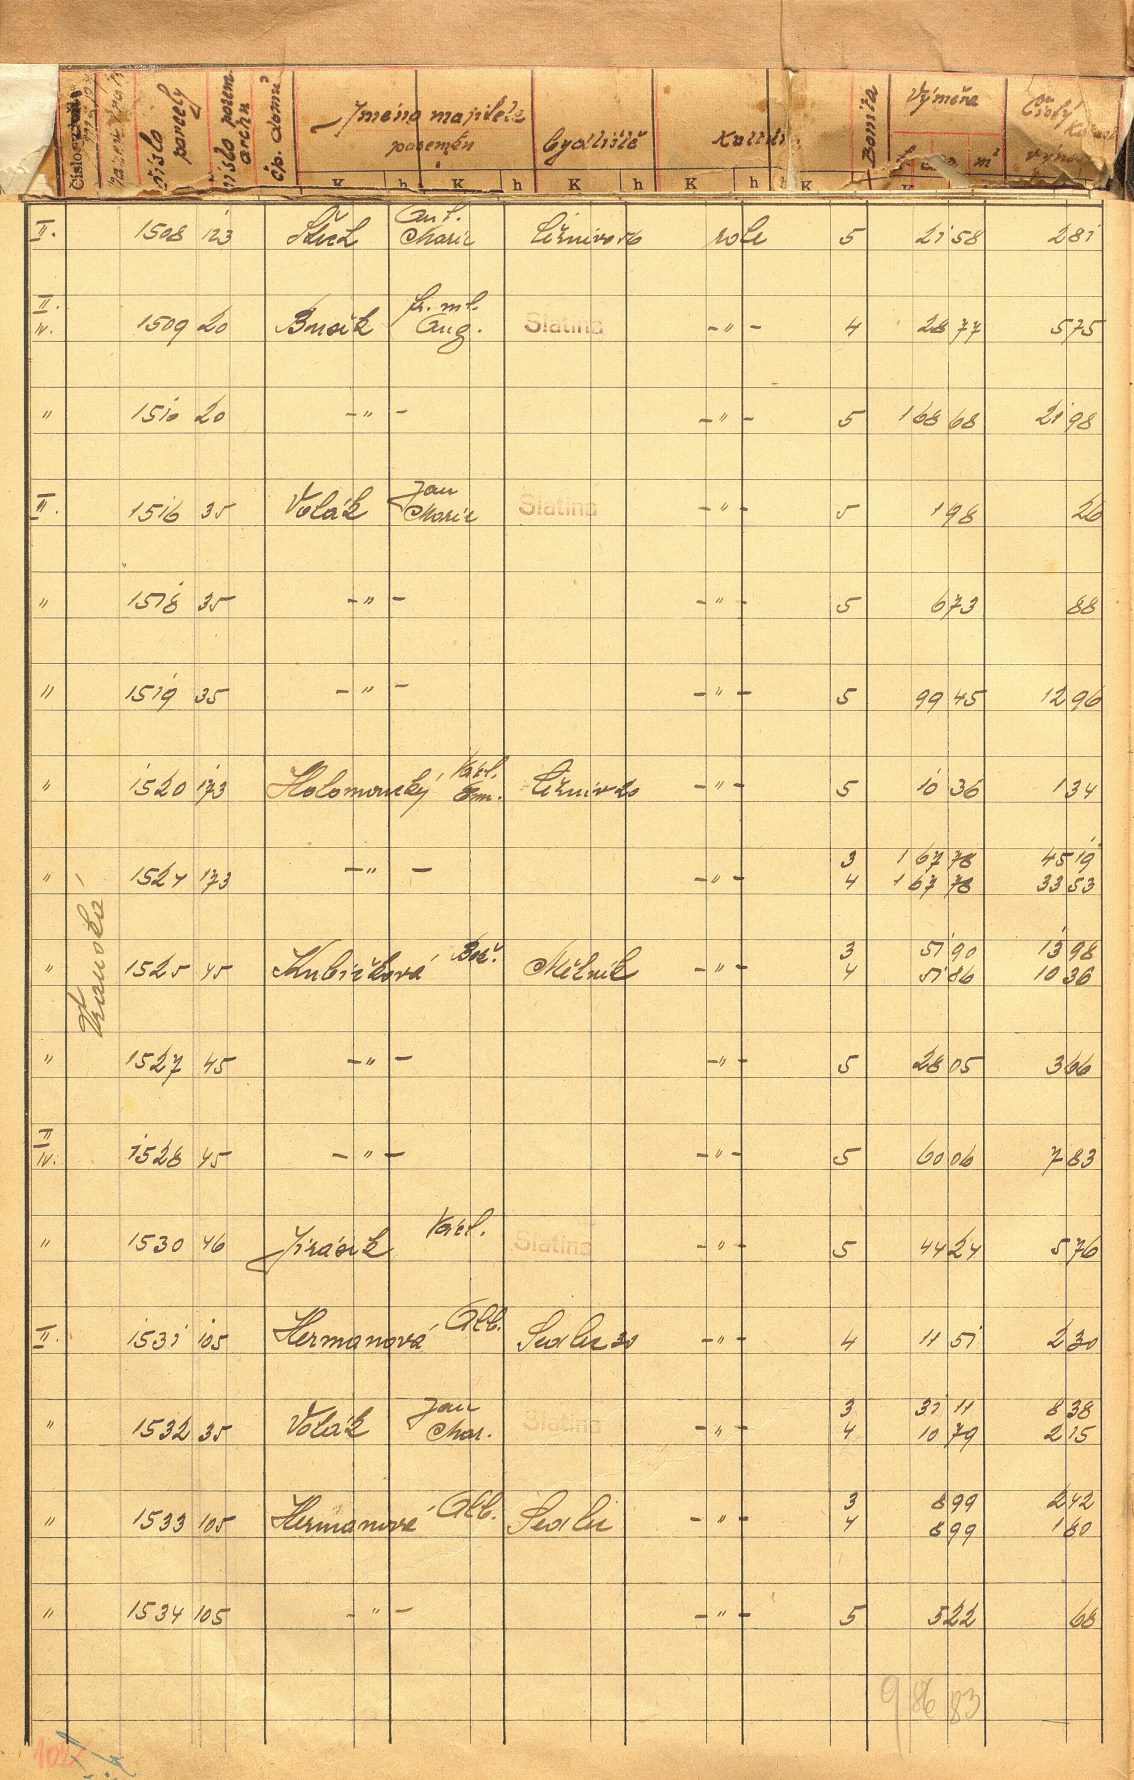 číslo parcely
číslo pozem. archu
čp. domu
Jméno majitele pozemku
bydliště
Bonita
Výměra
m²
Čistý
K h K h K h K h K
II. 1508 123 Ant. Marie role 5 21 58 281
II. IV. 1509 20 fr. ml. Aug. Slatina -"- 4 28 77 575
" 1510 20 -"- -"- 5 1 68 68 21 98
II. 1516 35 Volák Jan Marie Slatina -"- 5 1 98 26
" 1518 35 -"- -"- 5 6 73 88
" 1519 35 -"- -"- 5 99 45 12 96
" 1520 173 Holomoucký Václ. Em. -"- 5 10 36 1 34
" 1524 173 -"- -"- 3 1 67 78 45 19
4 1 67 78 33 53
" 1525 45 Kubíčková Bož. Mělník -"- 3 51 90 13 98
4 51 86 10 36
" 1527 45 -"- -"- 5 28 05 3 66
II IV. 1528 45 -"- -"- 5 60 06 7 83
" 1530 46 Jirásek Václ. Slatina -"- 5 44 24 5 76
II. 1531 105 Hermanová Alb. Sedlec 30 -"- 4 11 51 2 30
" 1532 35 Volák Jan Mar. Slatina -"- 3 31 11 8 38
4 10 79 2 15
" 1533 105 Hermanová Alb. Sedlec -"- 3 8 99 2 42
4 8 99 1 80
" 1534 105 -"- -"- 5 5 22 68
9 86 83